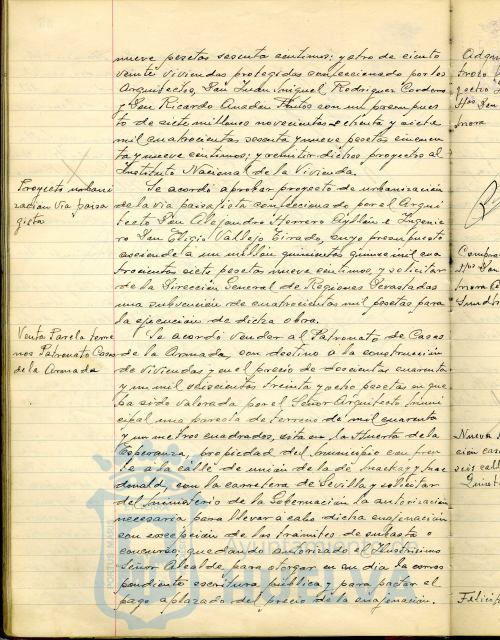 nueve pesetas sesenta centimos; y otro de ciento
veinte viviendas protegidas confeccionado por los
Arquitectos, Don Juan Miguel Rodriguez Cordero
y Don Ricardo Anadon Frutos con un presupues
to de siete millones novecientas ochenta y siete
mil cuatrocientas sesenta y nueve pesetas cincuen
ta y nueve centimos; y remitir dichos proyectos al
Instituto Nacional de la Vivienda.
Proyecto urbani
zacion Via paisa
gista
Se acordó aprobar proyecto de urbanización
de la via paisajista confeccionado por el Arqui
tecto Don Alejandro Herrero Ayllón e Ingenie
ro Don Eligio Vallejo Tirado, cuyo presupuesto
asciende a un millón quinientas quince mil cua
trocientas siete pesetas nueve centimos, y solicitar
de la Dirección General de Regiones Devastadas
una subvención de cuatrocientas mil pesetas para
la ejecución de dicha obra.
Venta Parcela terre
nos Patronato Casas
de la Armada
Se acordó vender al Patronato de Casas
de la Armada, con destino a la construcción
de viviendas y en el precio de doscientas cuarenta
y un mil seiscientas treinta y ocho pesetas en que
ha sido valorada por el Señor Arquitecto Muni
cipal una parcela de terreno de mil cuarenta
y un metros cuadrados, sita en la Huerta de la
Esperanza, propiedad del municipio con fren
te a la calle de unión de la de Mackay y Mac
donald, con la carretera de Sevilla y solicitar
del Ministerio de la Gobernación la autorización
necesaria para llevar a cabo dicha enajenación
con excepción de los trámites de subasta o
concurso; quedando autorizado el Ilustrisimo
Señor Alcalde para otorgar en su dia la corres
pondiente escritura pública y para pactar el
pago aplazado del precio de la enajenación.
Ayuntamiento de
Huelva
PORTUS MARIS